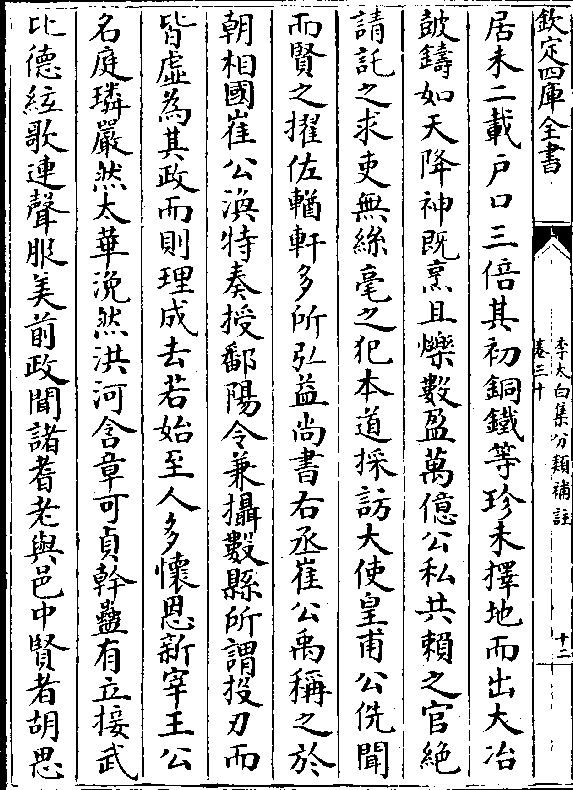 欽定四庫全書
李太白集分類補註
卷三十
十二
居未二載户口三倍其初銅鐵等珍未擇地而出大冶
皷鑄如天降神既烹且爍數盈萬億公私共賴之官絶
請託之求吏無絲毫之犯本道採訪大使皇甫公侁聞
而賢之擢佐輶軒多所弘益尚書右丞崔公禹稱之於
朝相國崔公渙特奏授鄱陽令兼攝數縣所謂投刃而
皆虛為其政而則理成去若始至人多懷恩新宰王公
名庭璘嚴然太華浼然洪河含章可貞幹蠱有立接武
比德絃歌連聲服美前政聞諸耆老與邑中賢者胡思